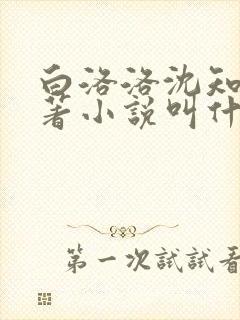 白洛洛沈知
著小说叫什
第一次試試看